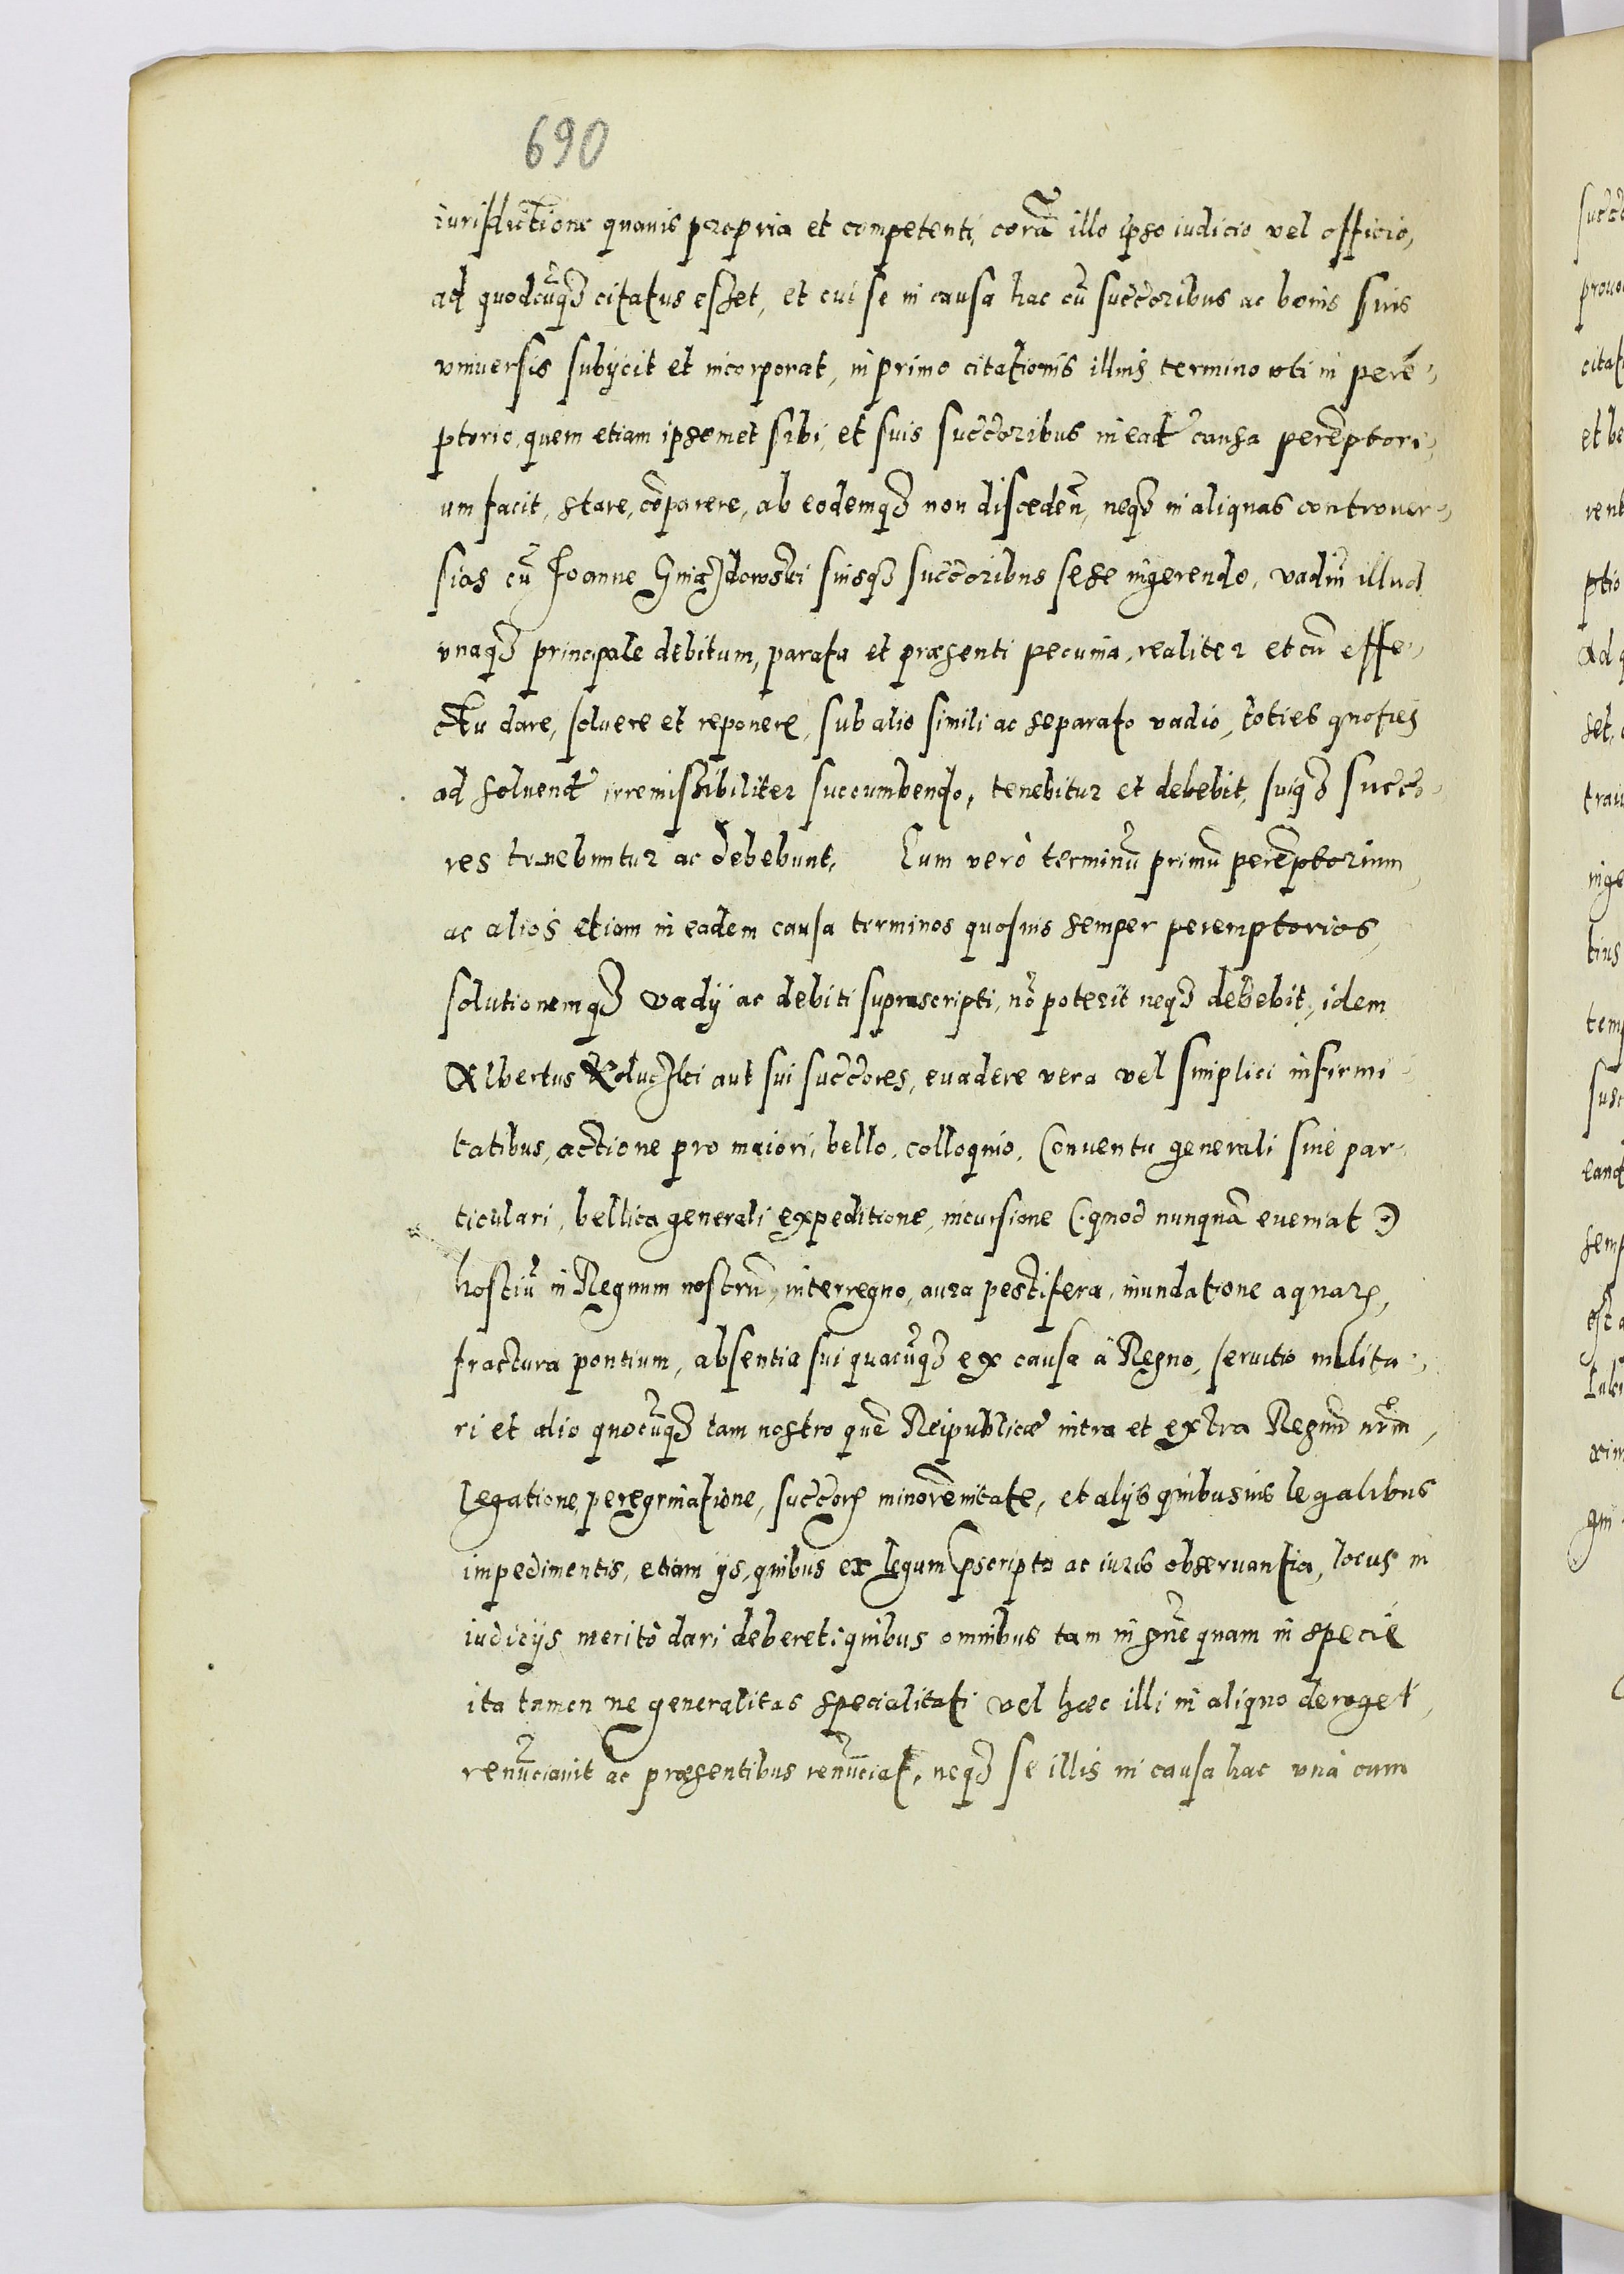 690
iurisdictione quauis propria et competenti, corā illo ipso iudicio vel officio,
ad quodcūq3 citatus esset, et cui se in causa hac cū succoribus ac bonis suis
vniuersis subÿcit et incorporat, in primo citationis illius termino vti in perē„
ptorio, quem etiam ipsemet sibi, et suis succoribus in ead causa perēptori„
um facit, stare, cōparere, ab eodemq3 non disceden, neq3 in aliquas controuer„
sias cū Joanne Gniazdowski suisq3 succoribus sese ingerendo, vadiū illud
vnaq3 principale debitum, parata et præsenti pecunia, realiter et cū effe„
ctu dare, soluere et reponere, sub alio simili ac separato vadio, toties quoties
ad soluend irremissibiliter succumbendo, tenebitur et debebit, suiq3 succo„
res tenebuntur ac debebunt. Cum verò terminū primū perēptorium
ac alios etiam in eadem causa terminos quosuis semper peremptorios,
solutionemq3 vadÿ ac debiti suprascripti, nō poterit neq3 debebit, idem
Albertus aut sui succores, euadere vera vel simplici infirmi„
tatibus, actione pro maiori, bello, colloquio, Conuentu generali siue par„
ticulari, bellica generali expeditione, incursione (:quod nunquā eueniat:)
hostiū in Regnum nostrū, interregno, aura pestifera, inundatione aquarȝ,
fractura pontium, absentia sui quacūq3 ex causa à Regno, seruitio milita„
ri et alio quocūq3 tam nostro quē Reipublicæ intra et extra Regnū nrm,
legatione, peregrinatione, succorȝ minorennitate, et alÿs quibusuis legalibus
impedimentis, etiam ÿs, quibus ex legum pscripto ac iuris obseruantia, locus in
iudicÿs meritò dari deberet: quibus omnibus tam in gne quam in specie
ita tamen ne generalitas specialitati vel hæc illi in aliquo deroget,
renūciauit ac præsentibus renūciat, neq3 se illis in causa hac vnà cum